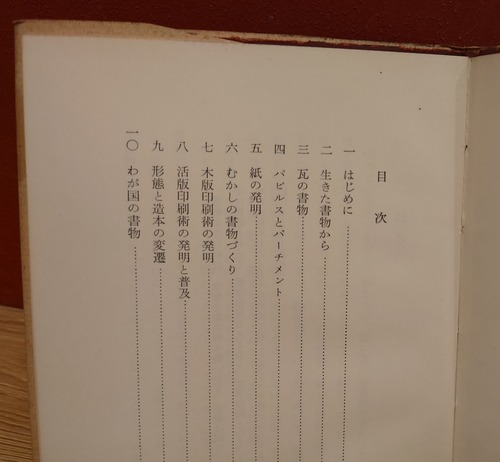 目次
一 はじめに
二 生きた書物から
三 瓦の書物
四 パピルスとパーチメント
五 紙の発明
六 むかしの書物づくり
七 木版印刷術の発明
八 活版印刷術の発明と普及
九 形態と造本の変遷
一〇 わが国の書物